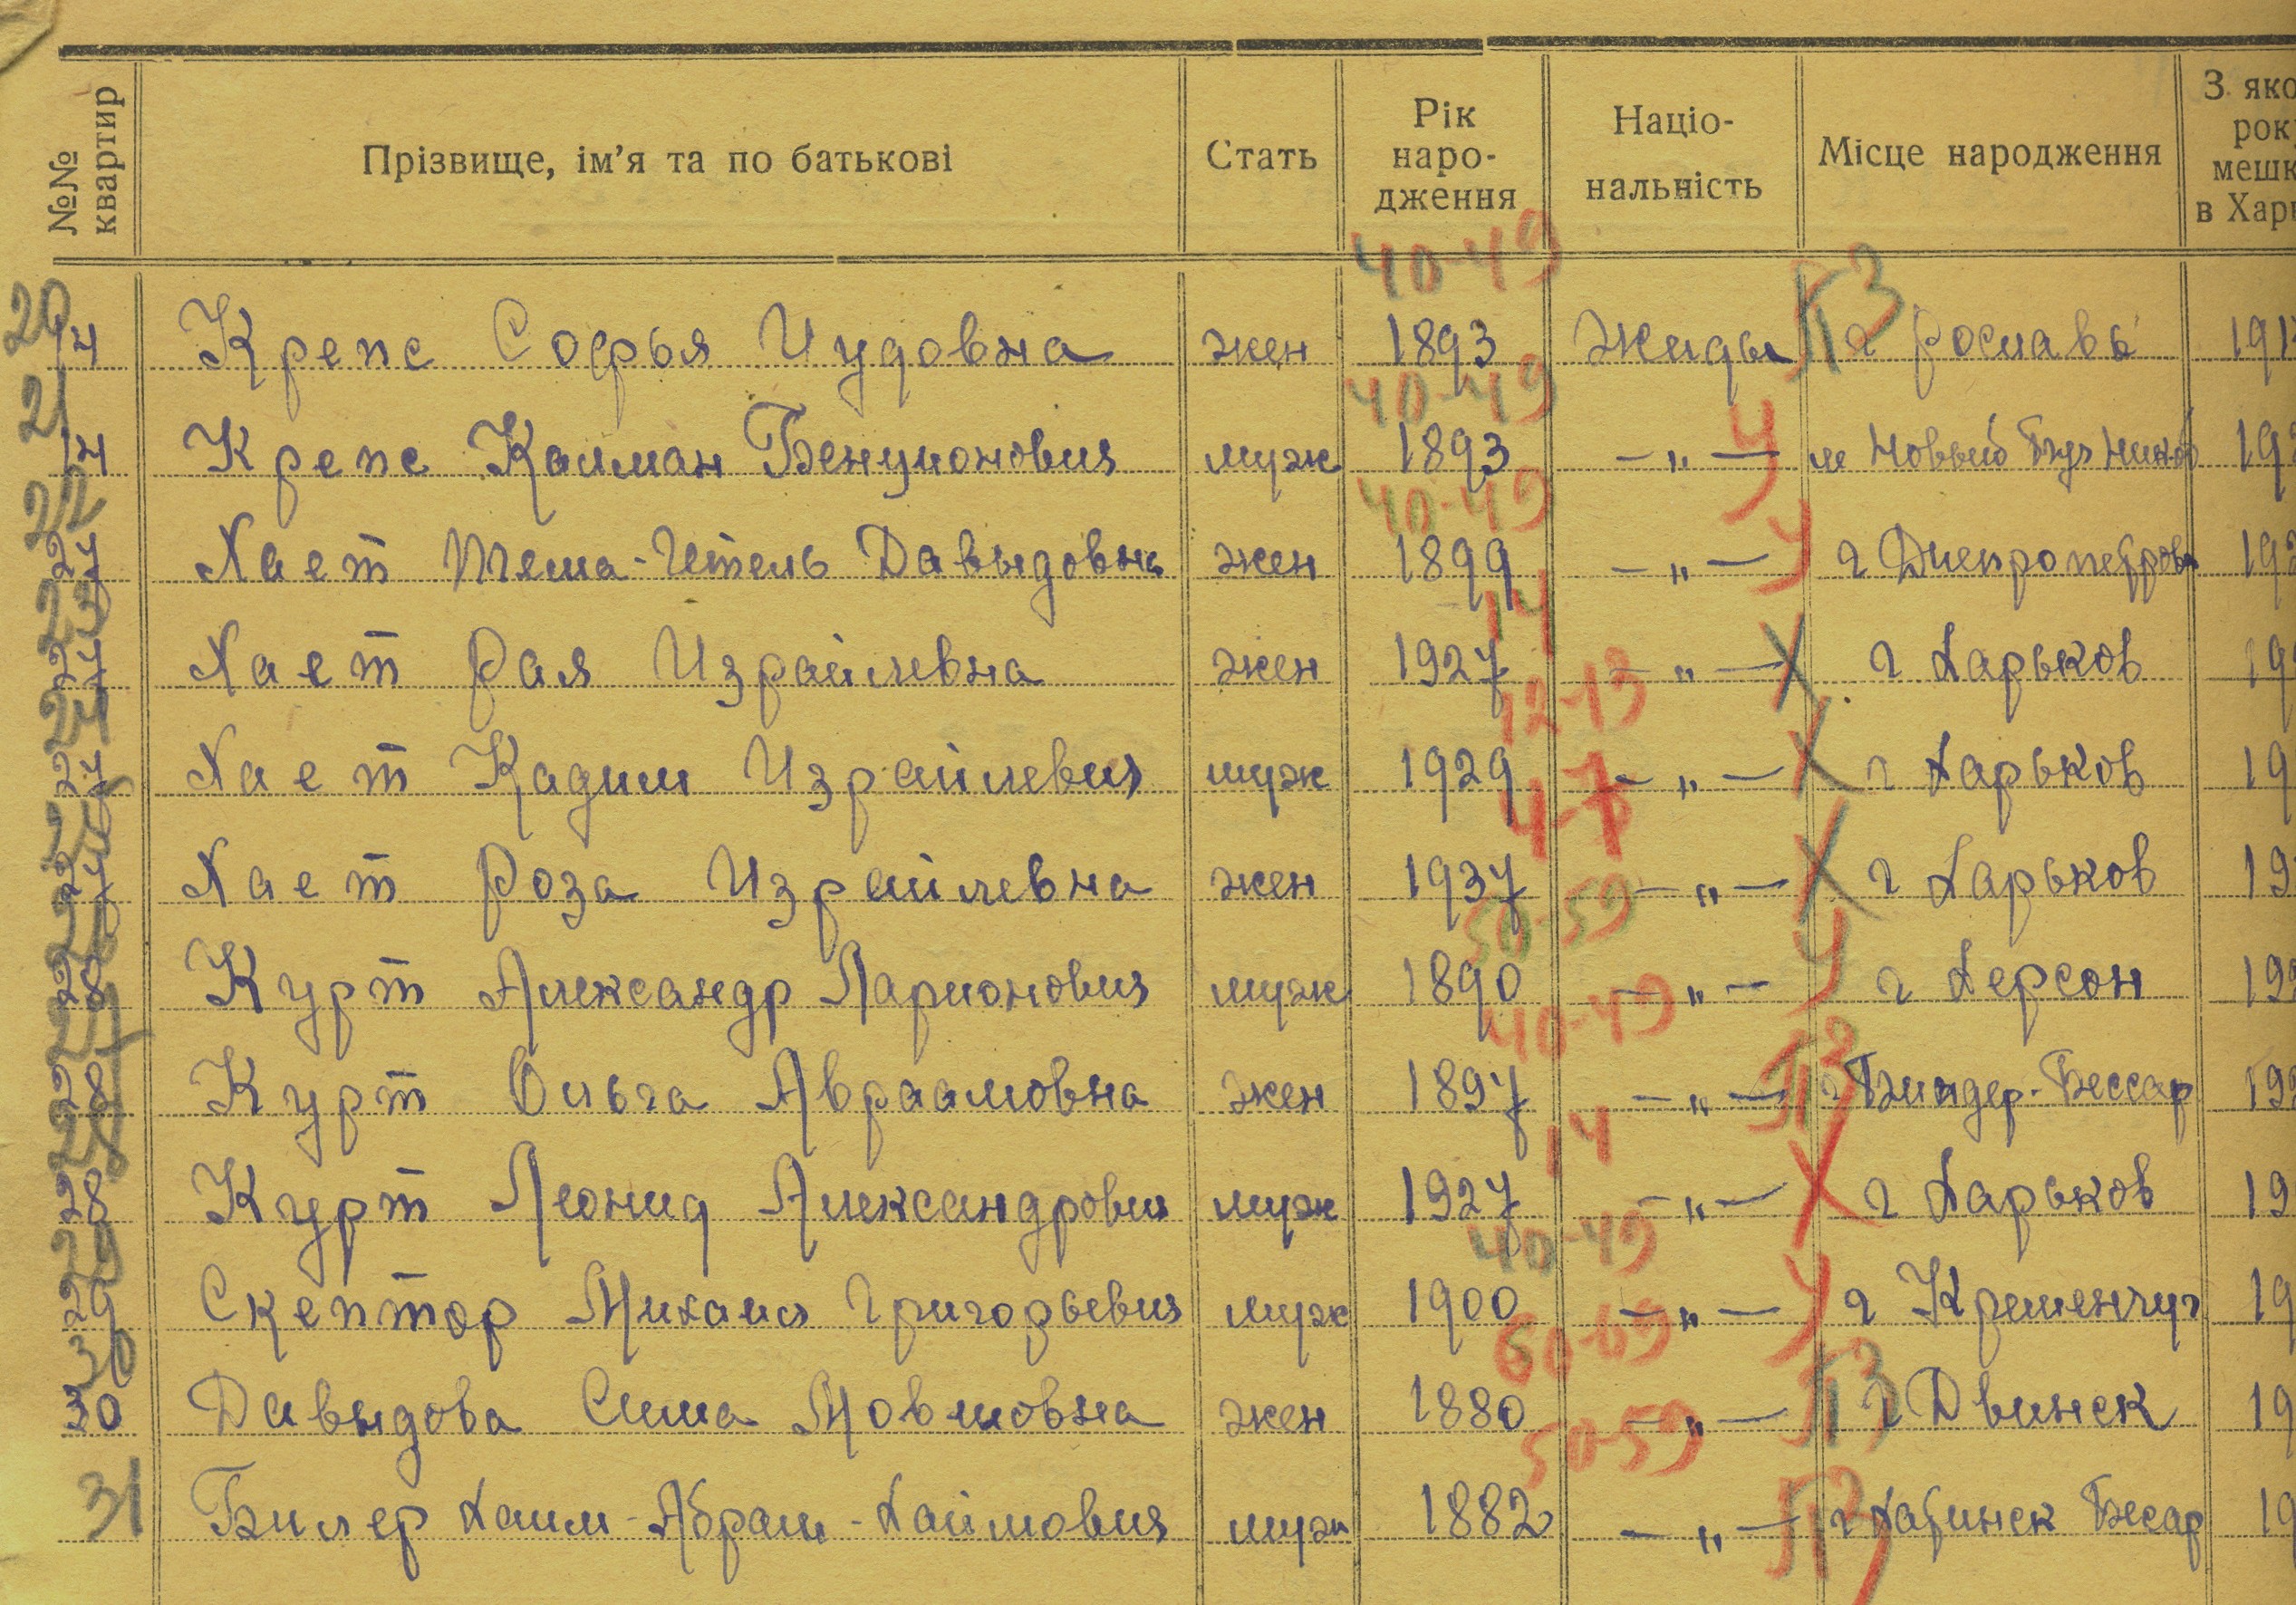 №№ квартир Прізвище, ім'я та по батькові Стать Рік наро- дження Націо- нальність Місце народження З яко рок мешк в Харк
40-49
20 14 Крепс Софья Иудовна жен 1893 Жиды П3 г Рославь 191
40-49
21 14 Крепс Калман Бенционович муж 1893 —„— У м Новый Буг Никол 19
40-49
22 24 Хает Тема-Итель Давыдовна жен 1899 —„— У г Днепропетровск 192
14
23 24 Хает Рая Израйлевна жен 1927 —„— Х г Харьков 19
12-13
24 24 Хает Кадим Израйлевич муж 1929 —„— Х г Харьков 19
4-7
25 24 Хает Роза Израйлевна жен 1937 —„— Х г Харьков 19
50-59
26 28 Курт Александр Ларионович муж 1890 —„— У г Херсон 19
40-49
27 28 Курт Ольга Авраамовна жен 1897 —„— П3 г Биндер-Бессар 19
14
28 28 Курт Леонид Александрович муж 1927 —„— Х г Харьков 19
40-49
29 29 Скептор Михаил Григорьевич муж 1900 —„— У г Кременчуг 19
60-69
30 30 Давыдова Сима Мовшовна жен 1880 —„— П3 г Двинск 19
50-59
31 Билер Хаим-Абрам-Хаймович муж 1882 —„— П3 г Бесар 19